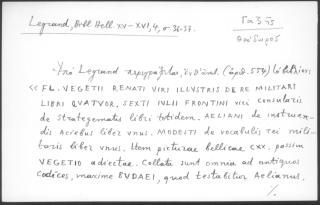 Legrand, Bibl Hell XV-XVI, 4, σ. 36-37.
Γαζῆς
Θεόδωρος
Ὑπὸ Legrand περιγράφεται, (ἀριθ. 554)
« FL. VEGETII RENATI VIRI ILLVSTRIS DE RE MILITARI
LIBRI QVATVOR. SEXTI IVLII FRONTINI viri consularis
de strategematis libri totidem. AELIANI de instruen-
dis aciebus liber vnus. MODESTI de vocabulis rei mili-
taris liber vnus. Item picturae bellicae CXX. passim
VEGETIO adiectae. Collata sunt omnia ad antiquos
codices, maxime BVDAEI, quod testabitur Aelianus.
%.